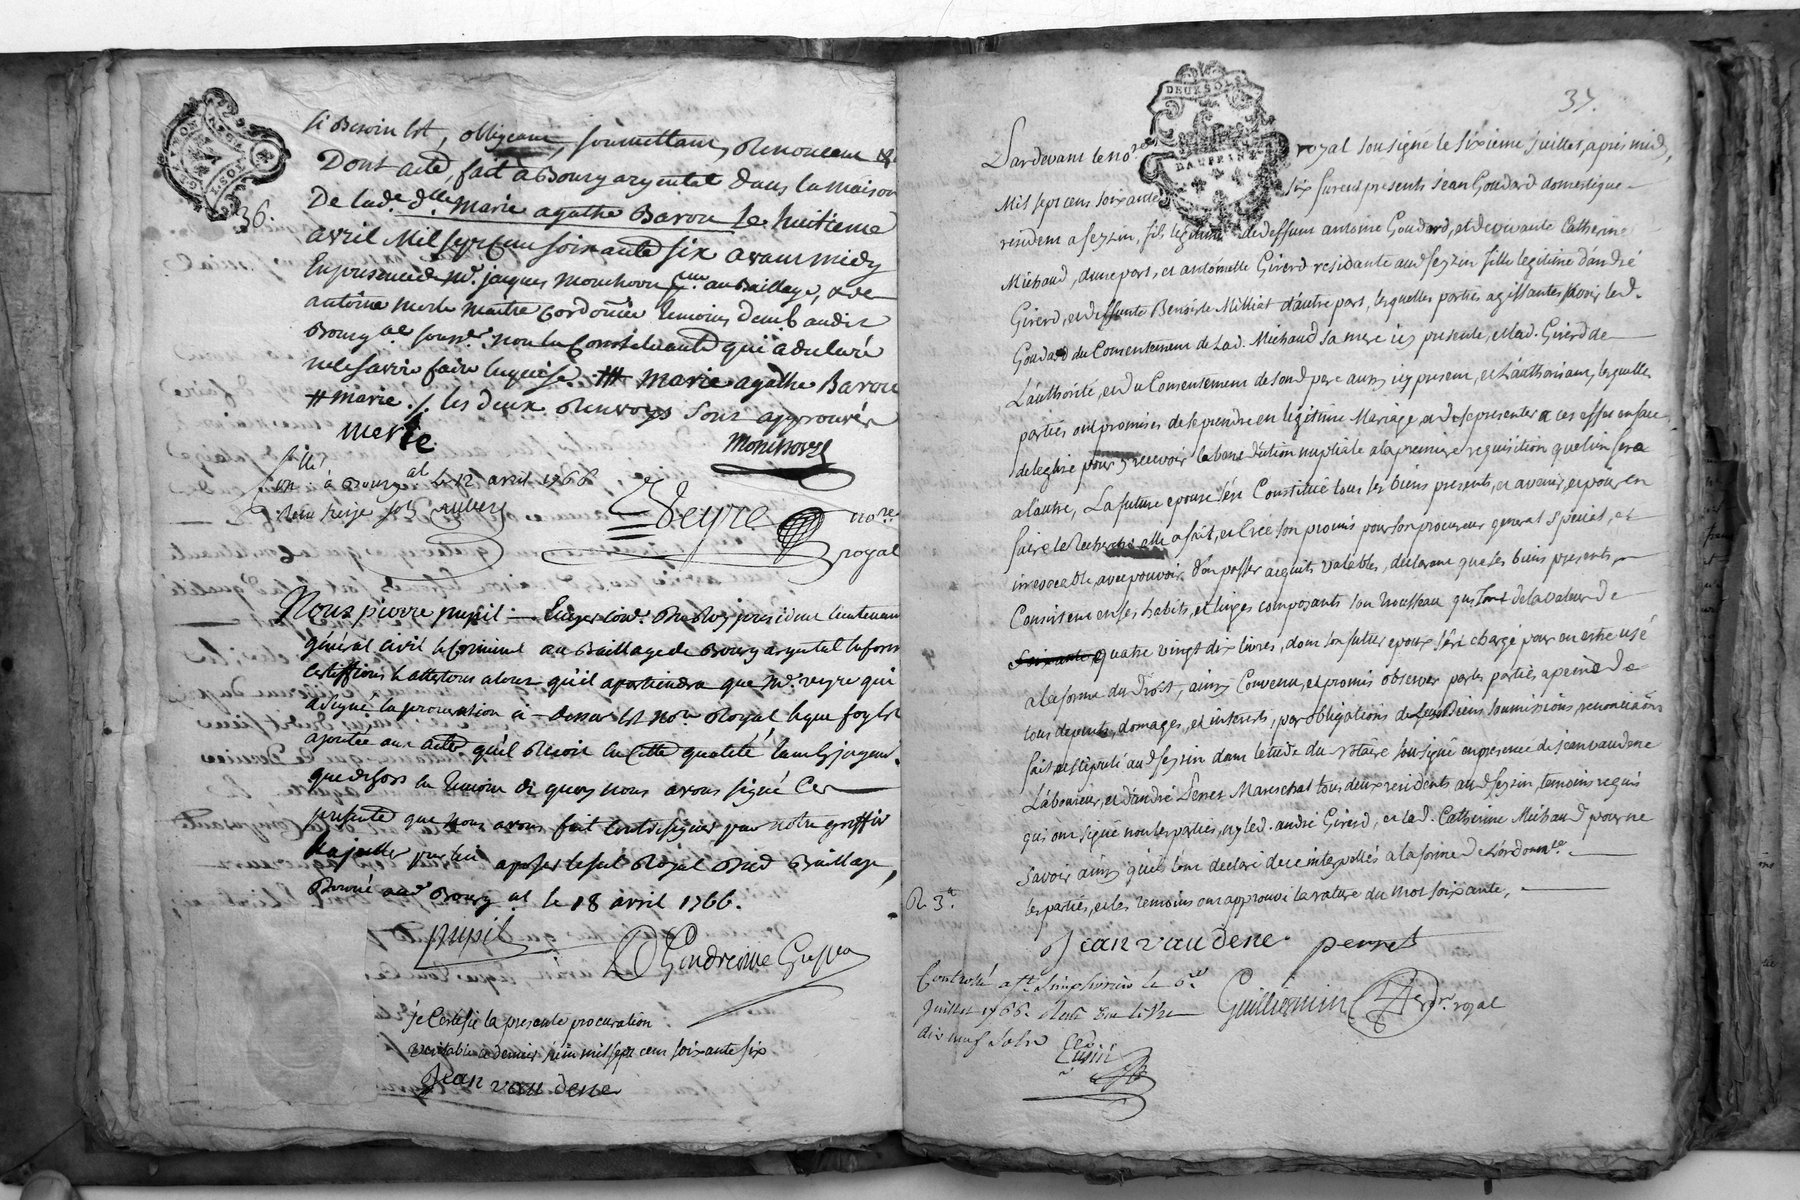 36.
si Besoin est, obligeant, soumettant, Renonceant &
Dont acte, fait a Bourgargental dans la maison
De lade. dlle. Marie agathe Barou Le huitieme
avril Mil sept Cens soixante six avant midy
En presence de Mr. jacques Monchovet au Baillage, & de
antoine merle maitre Cordonnier temoins dem.t audit
Bourg al soussnés non la Constituante qui a declaré
ne le savoir faire Enquise. # Marie agathe Barou
# marie ./. les deux Renvoys sont approuvés
merle
Monchovet
à Bourg al Le 12 avril 1766
Reçu treize sols
Veyre nore.
royal
Nous pierre pupil Ecuyer Conr. Du Roy president Lieutenant
général civil & Criminel au Baillage de Bourg argental & forest
Certiffions & attestons a tous qu'il apartiendra que Me. veyre qui
a signé la procuration cy Dessus Est nore Royal, & que foy Est
ajoutée aux actes qu'il Reçoit En Cette qualité tant En jugemt.
que dehors En temoin de quoy nous avons signé Ces
presentes que Nous avons fait Contresigner par notre greffier
& apposer le scel Royal Dud. Baillage,
Donné aud. Bourg al le 18 avril 1766.
pupil
je Certifie la presente procuration
veritable ce dernier juin mil sept cens soixante six
Jean vaudene
37.
DEUX SOLS
DAUPHINE
Pardevant le nore. royal soussigné le sixieme juillet, apres midi,
Mil sept cens soixante six furent presents Jean Goudard domestique
residant a feyzin, fils legitime de deffunt antoine Goudard, et de vivante Catherine
Michaud, d'une part, et antoinette Girerd residante aud. feyzin fille legitime d'andré
Girerd, et deffunte Benoite Milliat d'autre part, lesquelles parties agissantes savoir led.
Goudard du Consentement de Lad. Michaud sa mere icy presente, et lad. Girerd de
L'authorité, et du Consentement de sond. pere aussy icy present, et L'authorisant, lesquelles
parties ont promises de se prendre en legitime Mariage, et de se presenter a ces effet en face
de leglise pour y recevoir la benediction nuptiale a la premiere requisition que l'un fera
a l'autre, La future epouse s'est Constitué tous ses biens presents, et avenir, et pour en
faire le Recherche elle a fait, et Créé son promis pour son procureur general special, et
irrevocable avec pouvoir d'en passer acquits valables, declarant que ses biens presents
Consistent en ses habits, et linges composants son trousseau qui sont de la valeur de
soixante quatre vingt dix livres, dont son futur epoux s'est chargé pour en estre usé
a la forme du Droit, ainsy Convenu, et promis observer par les parties a peine de
tous depents, domages, et interets, par obligations de leurs Biens soumissions renonciaons
fait et stipulé aud. feyzin dans letude du notaire soussigné en presence de jean vaudene
Laboureur, et d'andré Perret Mareschal tous deux residents aud. feyzin, temoins requis
qui ont signé non les parties, ny led. andré Girerd, et lad. Catherine Michaud pour ne
savoir ainsy qu'ils l'ont declaré de ce interpellés a la forme de L'ordonnce.
les parties, et les temoins ont approuvé la rature du mot soixante,
Jean vaudene perret
Controllé a St. Simphorien le 6e.
Juillet 1766. Reçu une livre
dix neuf sols
Guillermin Nore. royal